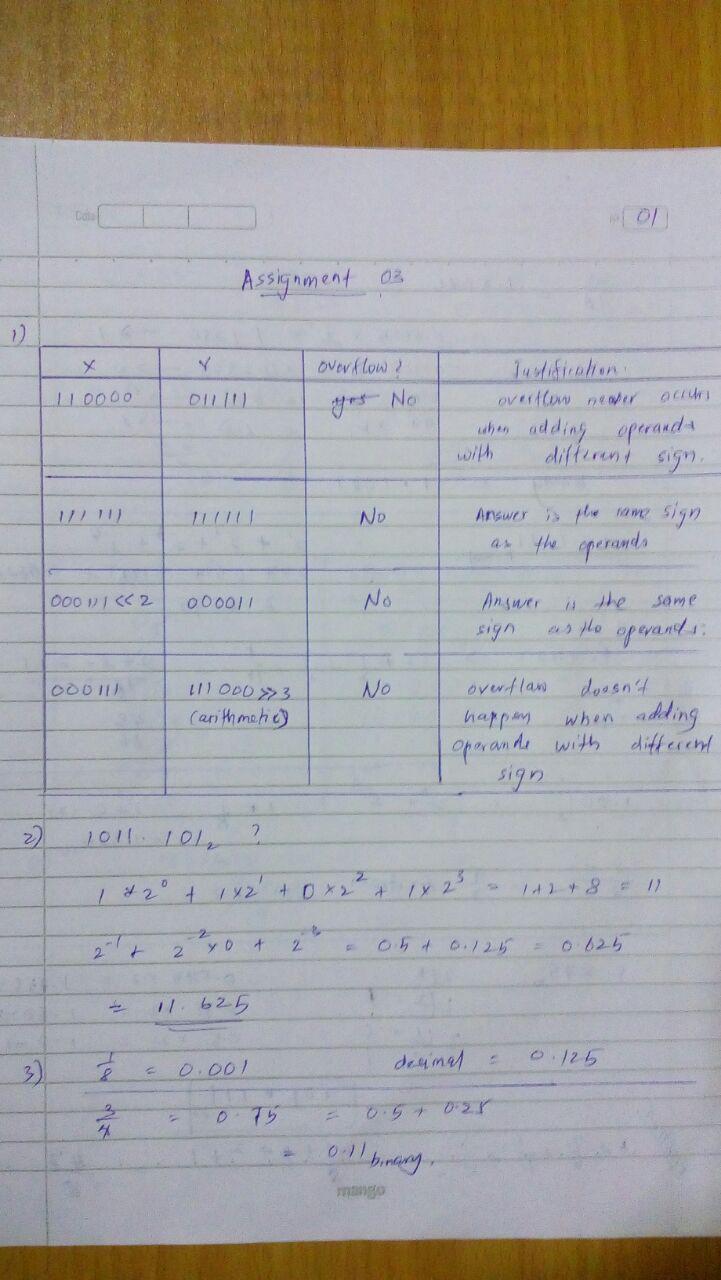 Date
01
Assignment 03
1)
X Y overflow? Justification.
110000 011111 yes No overflow never occurs
when adding operands
with different sign.
111111 111111 No Answer is the same sign
as the operands
000111<<2 000011 No Answer is the same
sign as the operands.
000111 111000>>3 No overflow doesn't
(arithmetic) happen when adding
operands with different
sign
2) 1011.101₂ ?
1×2⁰ + 1×2¹ + 0×2² + 1×2³ = 1+2+8 = 11
2⁻¹ + 2⁻²×0 + 2⁻³ = 0.5+0.125 = 0.625
= 11.625
3) 1/8 = 0.001 decimal = 0.125
3/4 = 0.75 = 0.5+0.25
= 0.11 binary.
mango